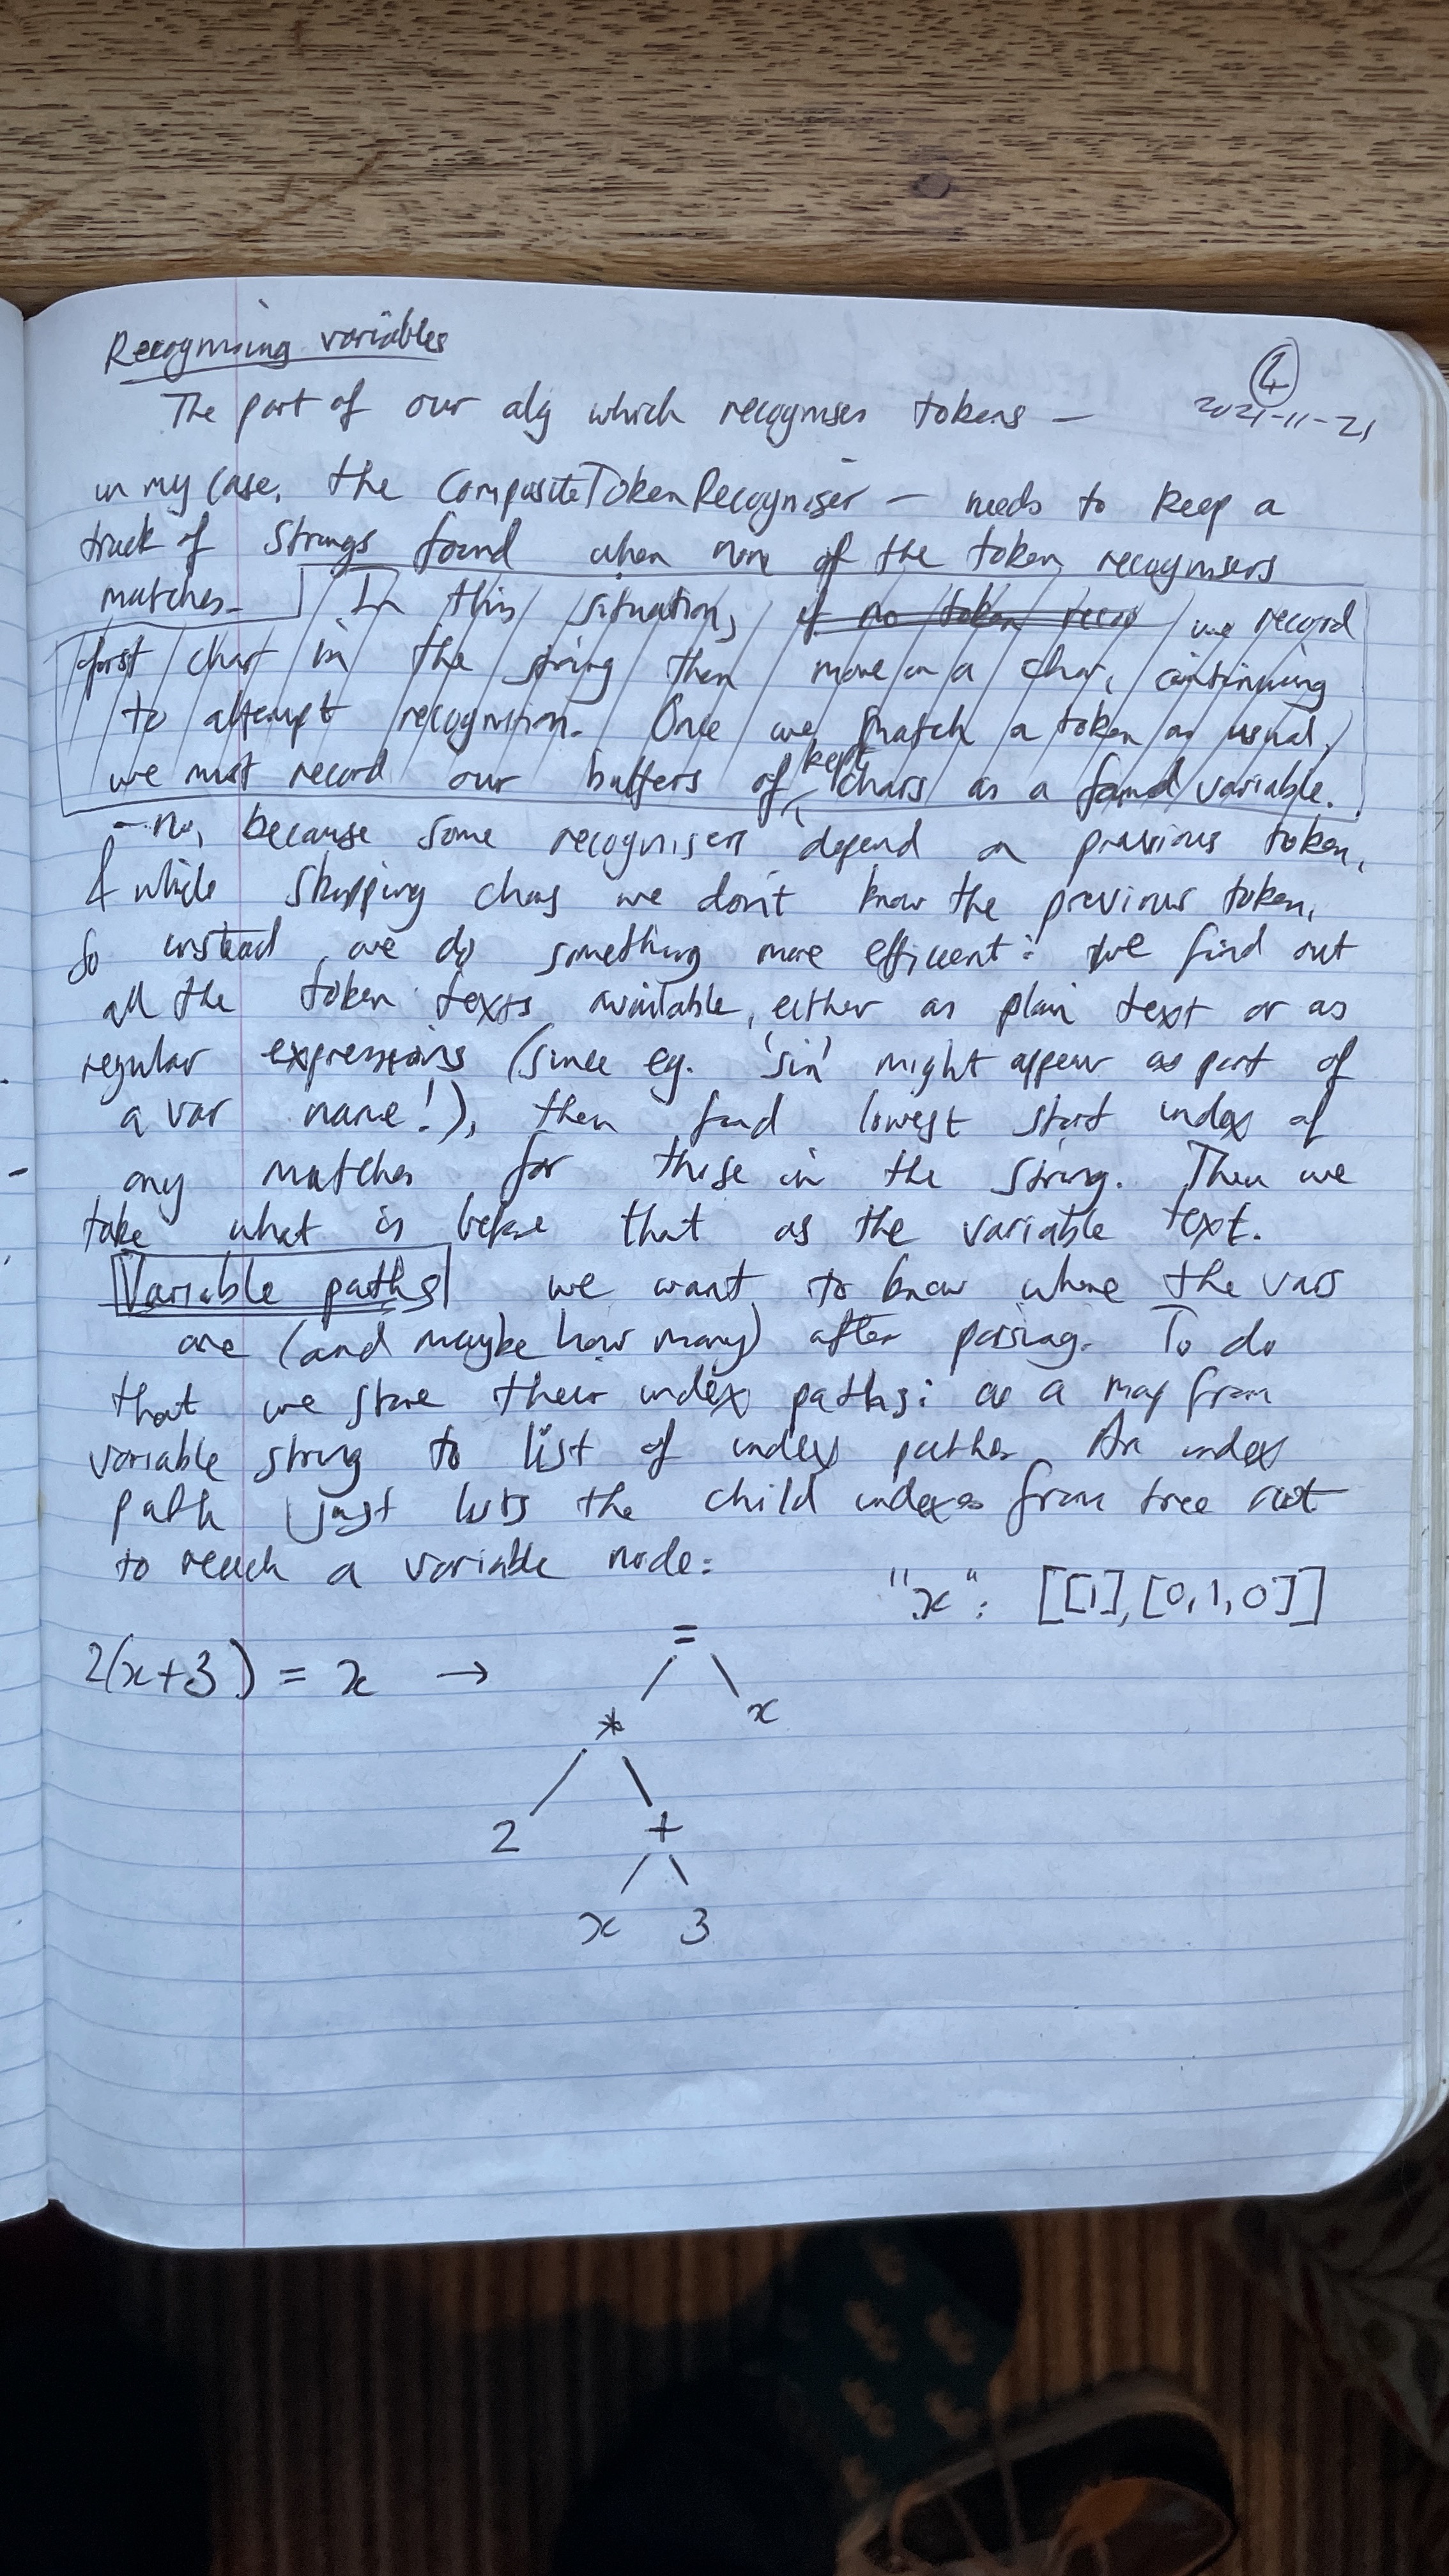 Recognising variables
④
2021-11-21
The part of our alg which recognises tokens —
in my case, the CompositeTokenRecogniser — needs to keep a
track of strings found when none of the token recognisers
matches. In this situation, if no token recog we record
first char in the string then move on a char, continuing
to attempt recognition. Once we match a token as usual,
we must record our buffers of kept chars as a found variable.
- no, because some recognisers depend on previous token,
& while skipping chars we don't know the previous token,
So instead we do something more efficient: we find out
all the token texts available, either as plain text or as
regular expressions (since eg. 'sin' might appear as part of
a var name!), then find lowest start index of
any matches for those in the string. Then we
take what is before that as the variable text.
Variable paths we want to know where the vars
are (and maybe how many) after parsing. To do
that we store their index paths: as a map from
variable string to list of index paths. An index
path just lists the child indexes from tree root
to reach a variable node:
"x": [[1],[0,1,0]]
2(x+3) = x →
=
* x
2 +
x 3